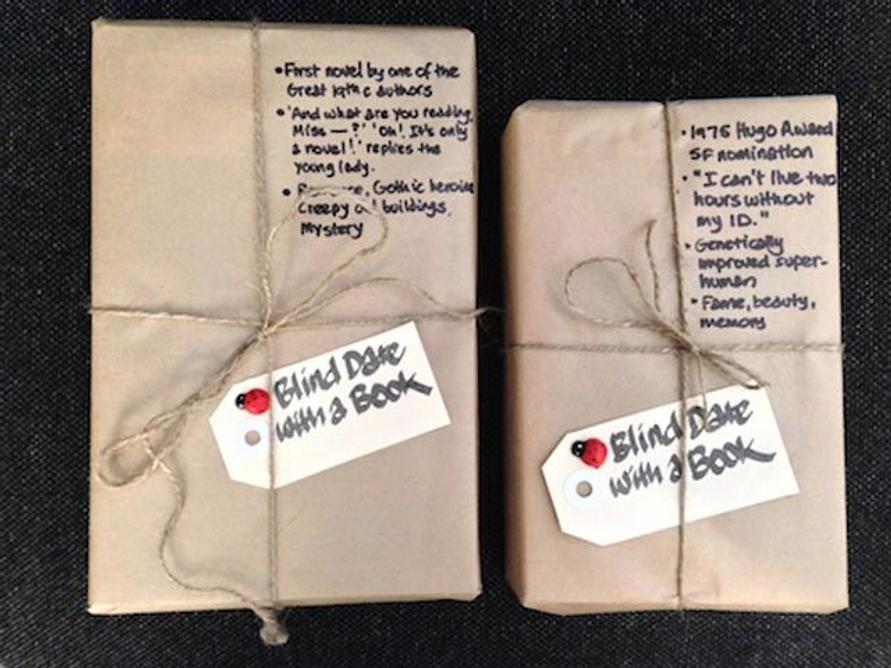 •First novel by one of the
Great 19th c authors
•'And what are you reading,
Miss — ?' 'Oh! It's only
a novel!' replies the
young lady.
• Romance, Gothic heroine
Creepy old buildings,
Mystery
Blind Date
with a Book
•1975 Hugo Award
SF nomination
•"I can't live two
hours without
my ID."
•Genetically
improved super-
human
•Fame, beauty,
memory
Blind Date
with a Book